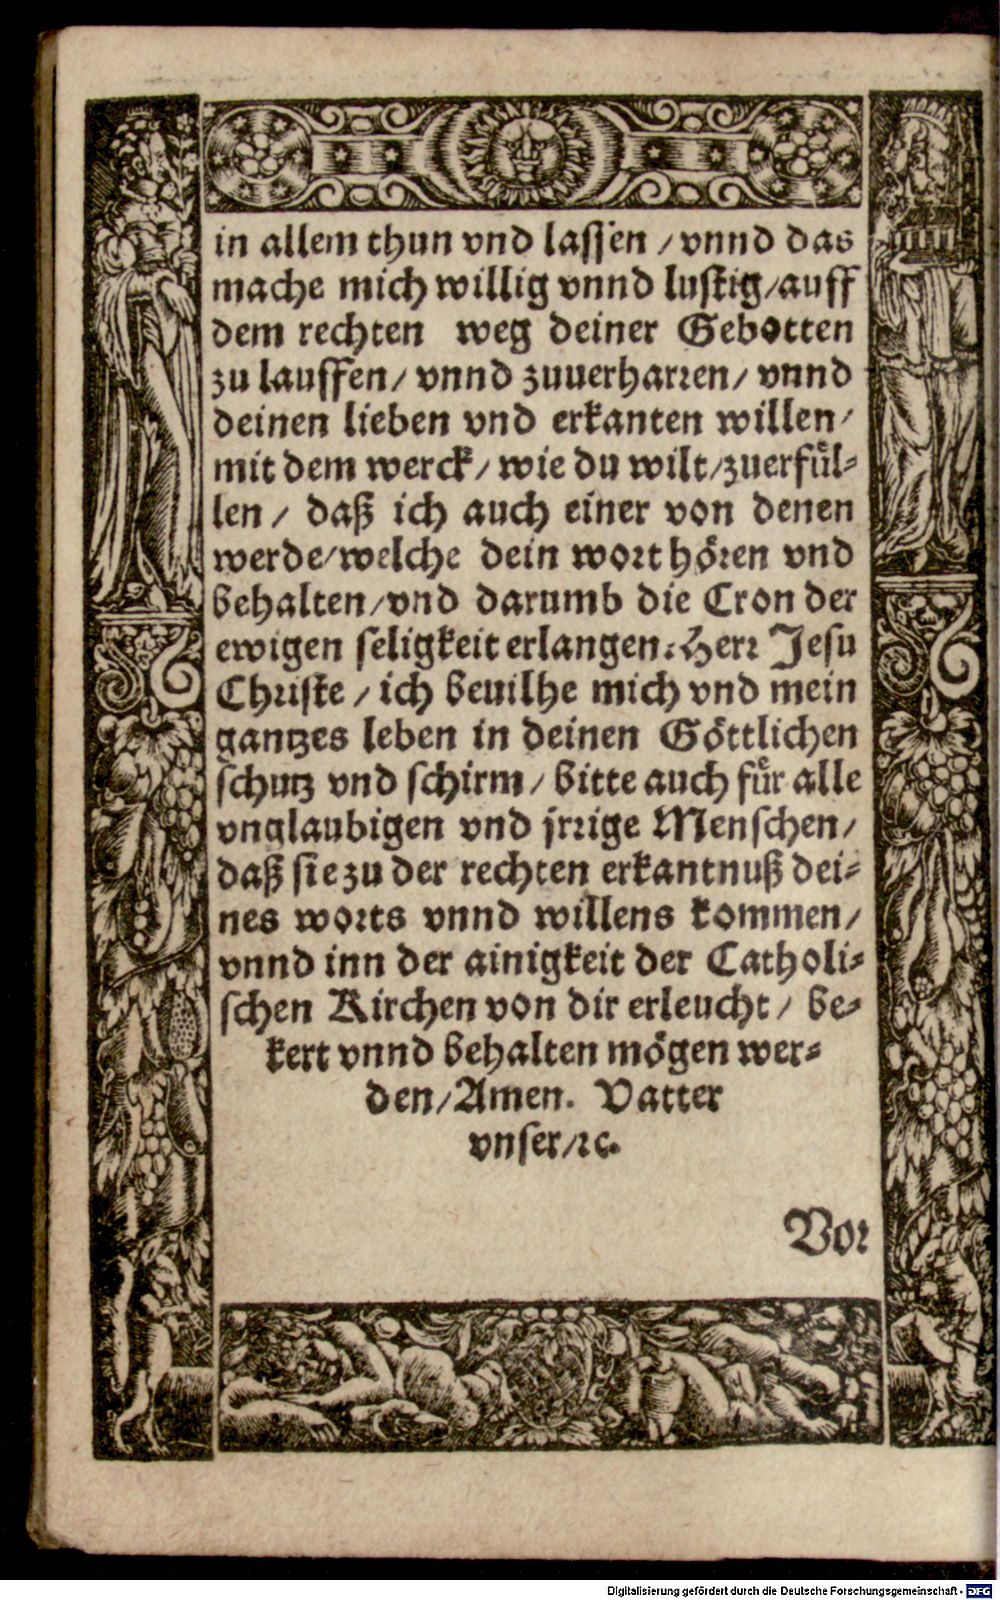 in allem thun vnd lassen / vnnd das
mache mich willig vnnd lustig/auff
dem rechten weg deiner Gebotten
zu lauffen/ vnnd zuuerharren/ vnnd
deinen lieben vnd erkanten willen/
mit dem werck/ wie du wilt/zuerfuͤl-
len / daß ich auch einer von denen
werde/welche dein wort hoͤren vnd
behalten/vnd darumb die Cron der
ewigen seligkeit erlangen: Herr Jesu
Christe / ich beuilhe mich vnd mein
gantzes leben in deinen Goͤttlichen
schutz vnd schirm/ bitte auch fuͤr alle
vnglaubigen vnd jrrige Menschen/
daß sie zu der rechten erkantnuß dei-
nes worts vnnd willens kommen/
vnnd inn der ainigkeit der Catholi-
schen Kirchen von dir erleucht/ be-
kert vnnd behalten moͤgen wer-
den/Amen. Vatter
vnser/ꝛc.
Vor
Digitalisierung gefördert durch die Deutsche Forschungsgemeinschaft - DFG